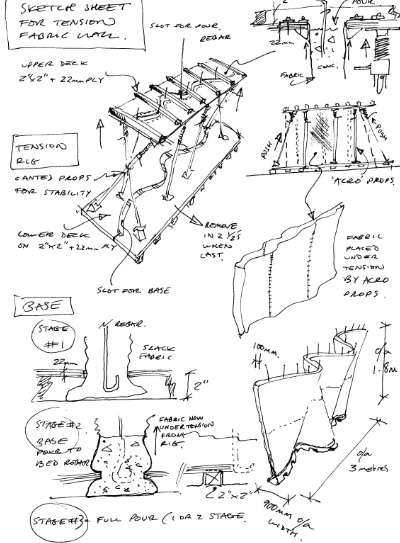 SKETCH SHEET
FOR TENSION
FABRIC WALL.
SLOT FOR POUR
REBAR
POUR
22mm
FABRIC
CONC.
UPPER DECK
2"x2" + 22mm PLY
TENSION
RIG
CANTED PROPS
FOR STABILITY
LOWER DECK
ON 2"x2" + 22mm PLY
SLOT FOR BASE
REMOVE
IN 2 1/2'S
WHEN
LAST.
PUSH
PUSH
'ACRO' PROPS.
FABRIC
PLACED
UNDER
TENSION
BY ACRO
PROPS.
BASE
STAGE
#1
REBAR.
SLACK
FABRIC
22mm
2"
STAGE #2
BASE
POUR TO
BED REBAR
FABRIC NOW
UNDER TENSION
FROM
RIG.
2"x2"
100mm.
o/a
1.8m
o/a
3 metres
900mm o/a
WIDTH.
STAGE #3 - FULL POUR (1 OR 2 STAGE.